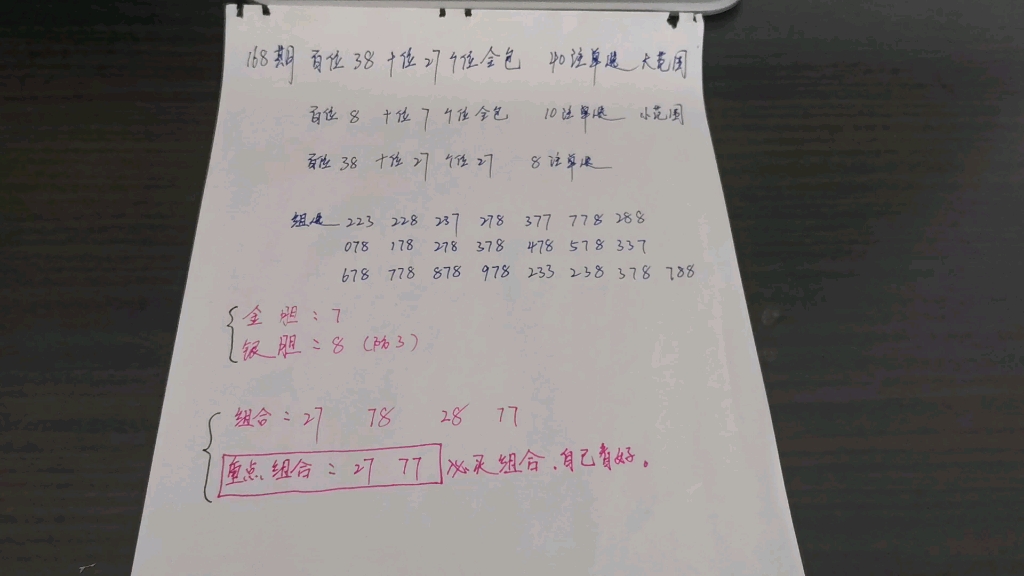 168期 百位 38 十位 27 个位全包 40注单选 大范围
百位 8 十位 7 个位全包 10注单选 小范围
百位 38 十位 27 个位 27 8注单选
组选 223 228 237 278 377 778 288
078 178 278 378 478 578 337
678 778 878 978 233 238 378 788
金胆：7
银胆：8（防3）
组合：27 78 28 77
重点组合：27 77 必买组合、自己看好。